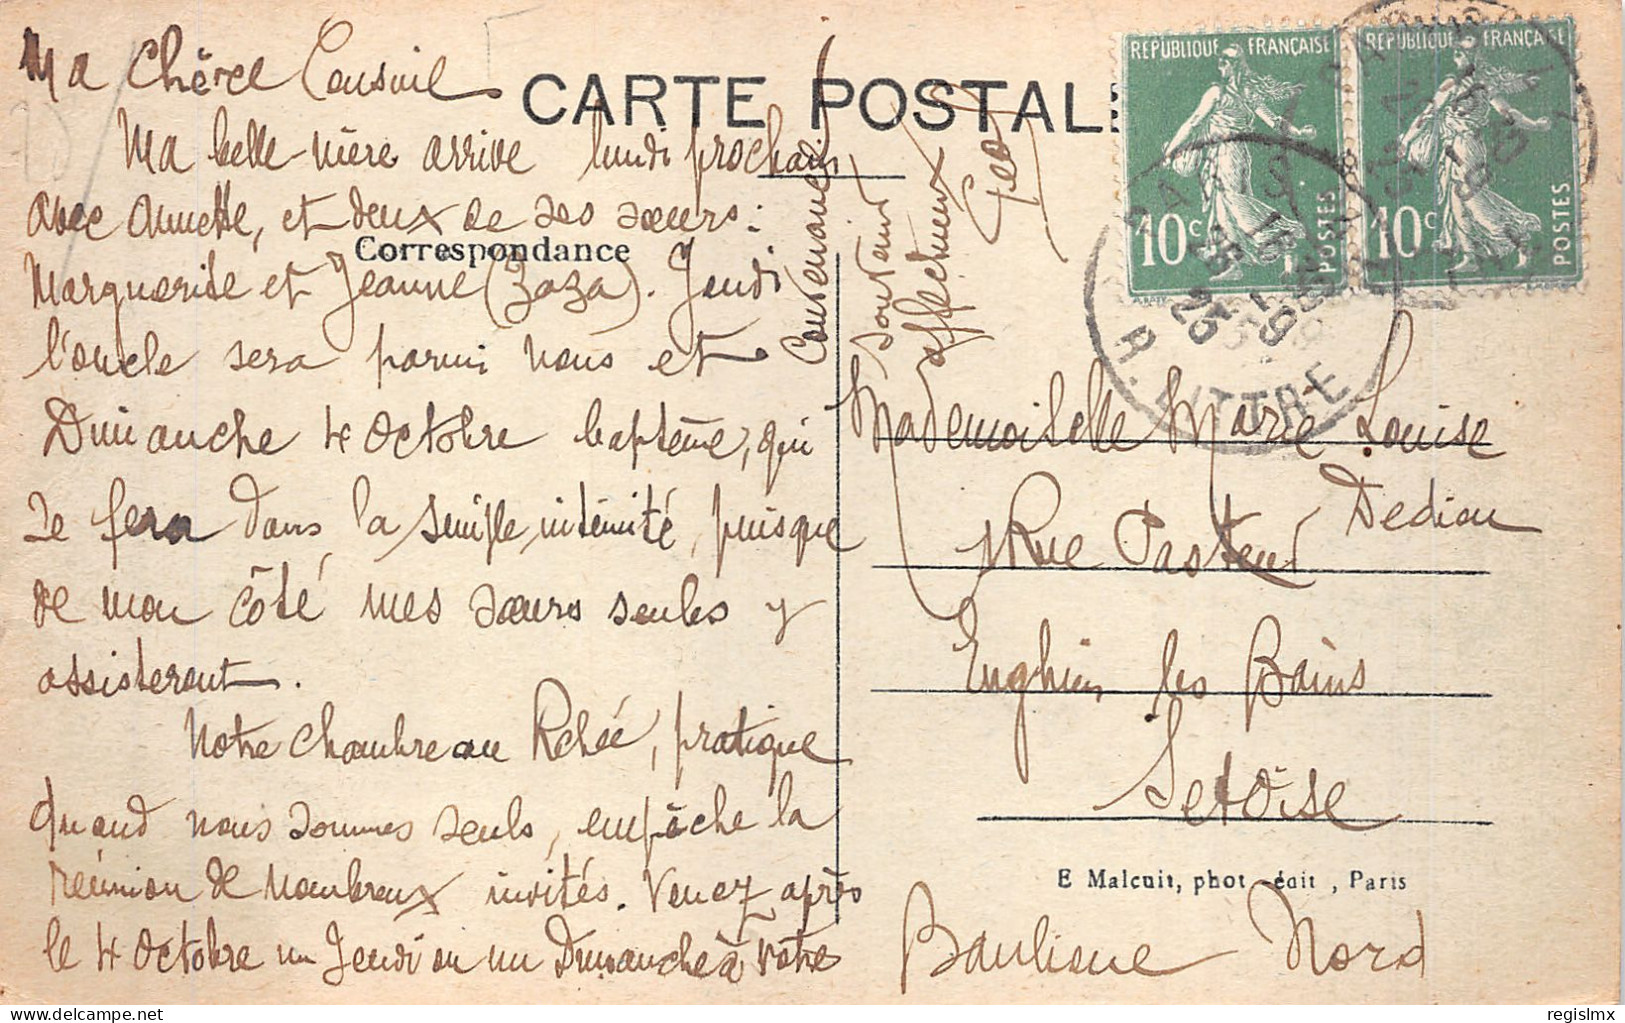 Ma Chère Cousine
CARTE POSTALE
Ma belle-mère arrive lundi prochain
avec Annette, et deux de ses sœurs :
Correspondance
Marguerite et Jeanne (Zaza). Jeudi
l'oncle sera parmi nous et
Dimanche 4 Octobre baptême, qui
se fera dans la simple intimité, puisque
de mon côté mes sœurs seules y
assisteront.
Notre chambre au Rchée, pratique
quand nous sommes seuls, empêche la
réunion de nombreux invités. Venez après
le 4 Octobre un Jeudi ou un Dimanche à votre
convenance
Souvenir
affectueux
Geo
REPUBLIQUE FRANÇAISE
10c POSTES
REPUBLIQUE FRANÇAISE
10c POSTES
R. LITTRE
Mademoiselle Marie Louise
Dediou
Rue Pasteur
Enghien les Bains
Set Oise
E Malcuit, phot -édit , Paris
Banlieue Nord
regislmx